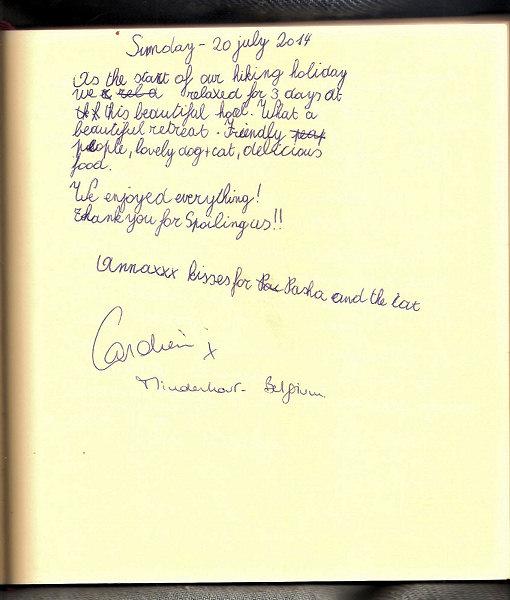 Sunday - 20 july 2014
As the start of our hiking holiday
we relaxed for 3 days at
this beautiful hotel. What a
beautiful retreat. Friendly
people, lovely dog+cat, delicious
food.
We enjoyed everything!
thank you for Spoiling us!!
Annaxxx kisses for Pasha and the cat
x
Minderhout - Belgium